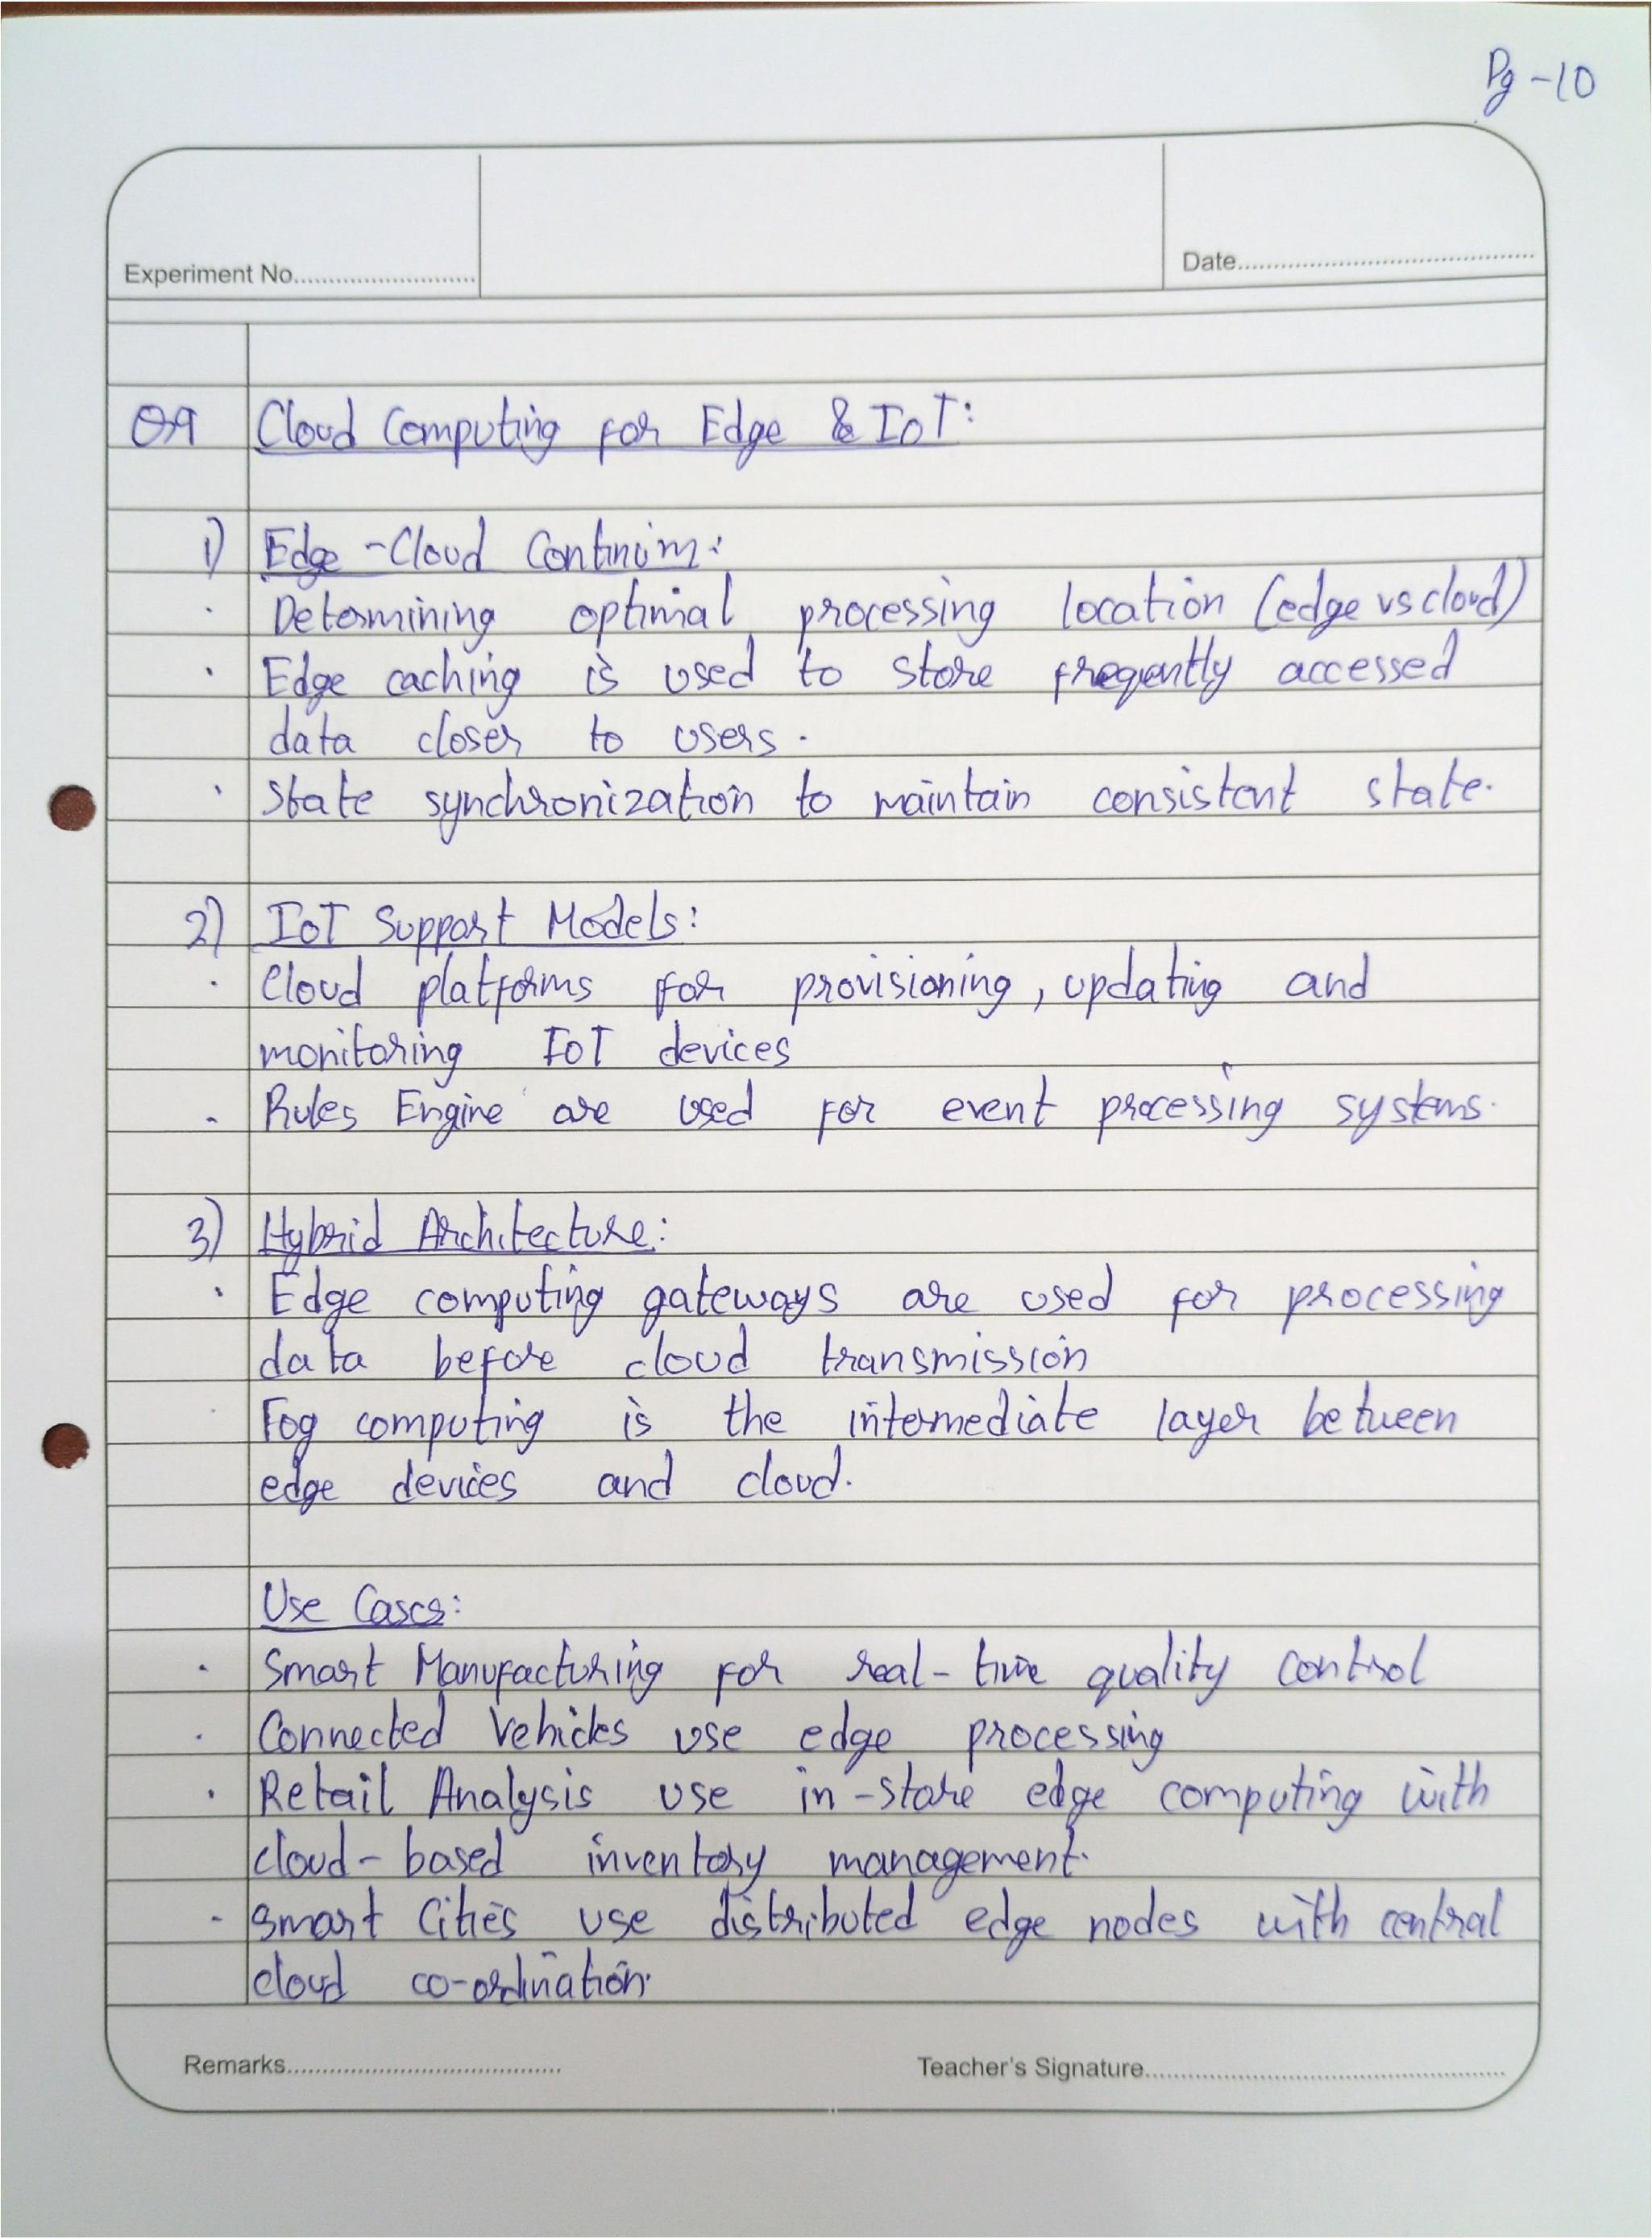 Pg-10
Experiment No.
Date
Q9 Cloud Computing for Edge & IoT:
1) Edge-Cloud Continum:
· Determining optimal processing location (edge vs cloud)
· Edge caching is used to store freqently accessed
data closer to users.
· State synchronization to maintain consistent state.
2) IoT Support Models:
· Cloud platforms for provisioning, updating and
monitoring IoT devices
· Rules Engine are used for event processing systems.
3) Hybrid Architecture:
· Edge computing gateways are used for processing
data before cloud transmission
· Fog computing is the intermediate layer between
edge devices and cloud.
Use Cases:
· Smart Manufacturing for real-time quality control
· Connected Vehicles use edge processing
· Retail Analysis use in-store edge computing with
cloud-based inventory management.
· Smart Cities use distributed edge nodes with central
cloud co-ordination.
Remarks
Teacher's Signature